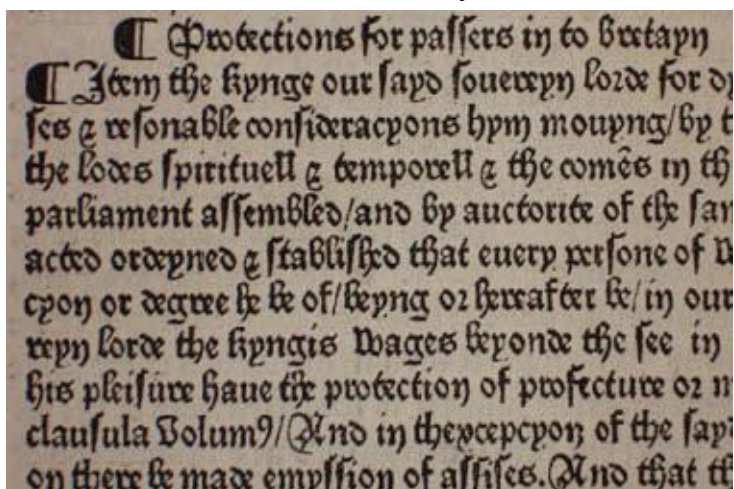 ¶ Protections for passers in to Bretayn
¶ Item the kynge our sayd souereyn lorde for dy
ses & resonable consideracyons hym mouyng/by t
the lodes spirituell & temporell & the comēs in th
parliament assembled/and by auctorite of the sam
acted ordeyned & stablisshed that euery persone of w
cyon or degree he be of/beyng or hereafter be/in our
reyn lorde the kyngis wages beyonde the see in
his pleisure haue the protection of profecture or m
clausula Volumꝯ/And in thexcepcyon of the sayd
on there be made emyssion of assises. And that th